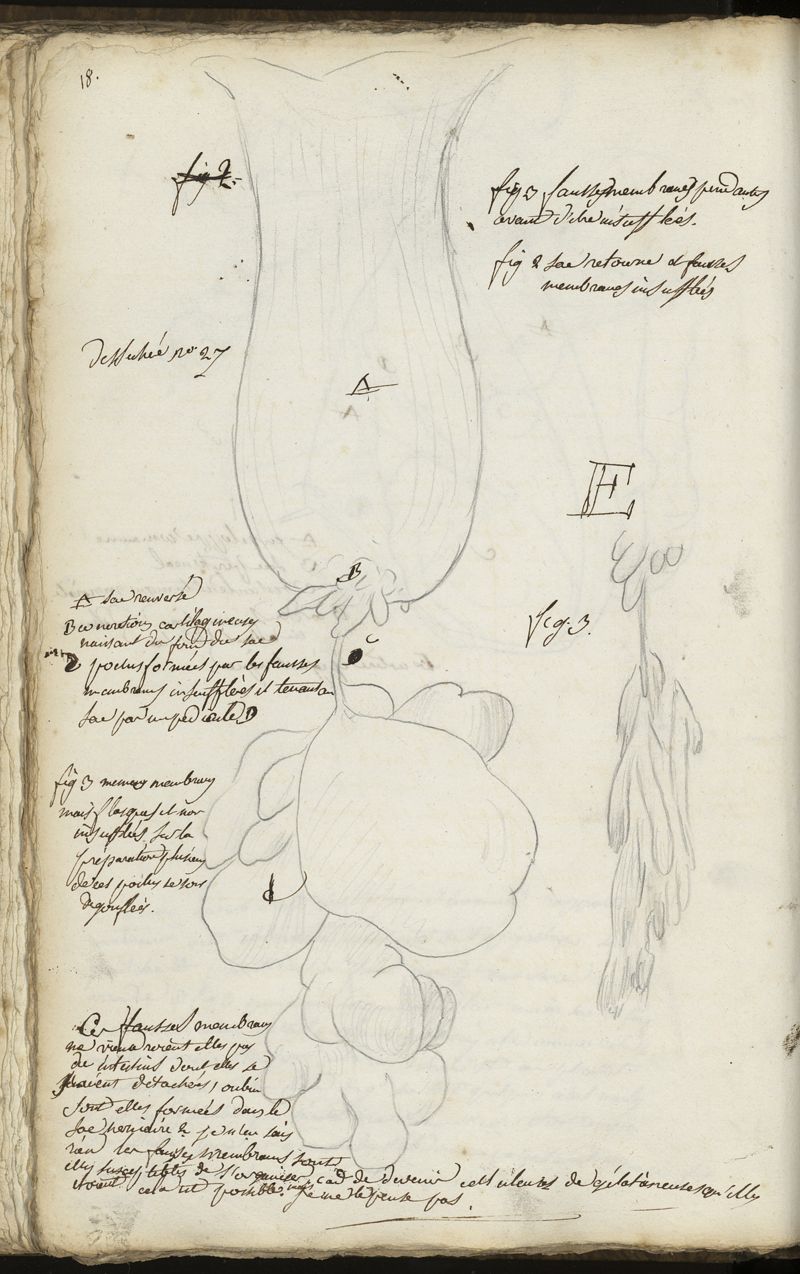 18.
fig 2.
fig 3 fausses membranes pendantes
avant d'etre insufflées.
fig 2 sac retourne et fausses
membranes insufflés
Desséchée no 27
A
E
B
fig. 3.
A sac renversé
B concretions cartilagineuses
naissant du fond du sac
poches formées par les fausses
membranes insufflées et tenant au
sac par un pedicule D
C
fig 3 memes membranes
mais flasques et non
insufflés sur la
préparation plusieurs
de ces poches se sont
degonflées.
Ces fausses membranes
ne viendroient elles pas
de intestins dont elles se
seroient detachées, ou bien
sont elles formées dans le
sac herniaire ? je n'en sais
rien les fausses membranes sont
elles susceptibles de s'organiser, cad de devenir celluleuses de gélatineuses qu'elles
étoient cela est possible mais je ne le pense pas.